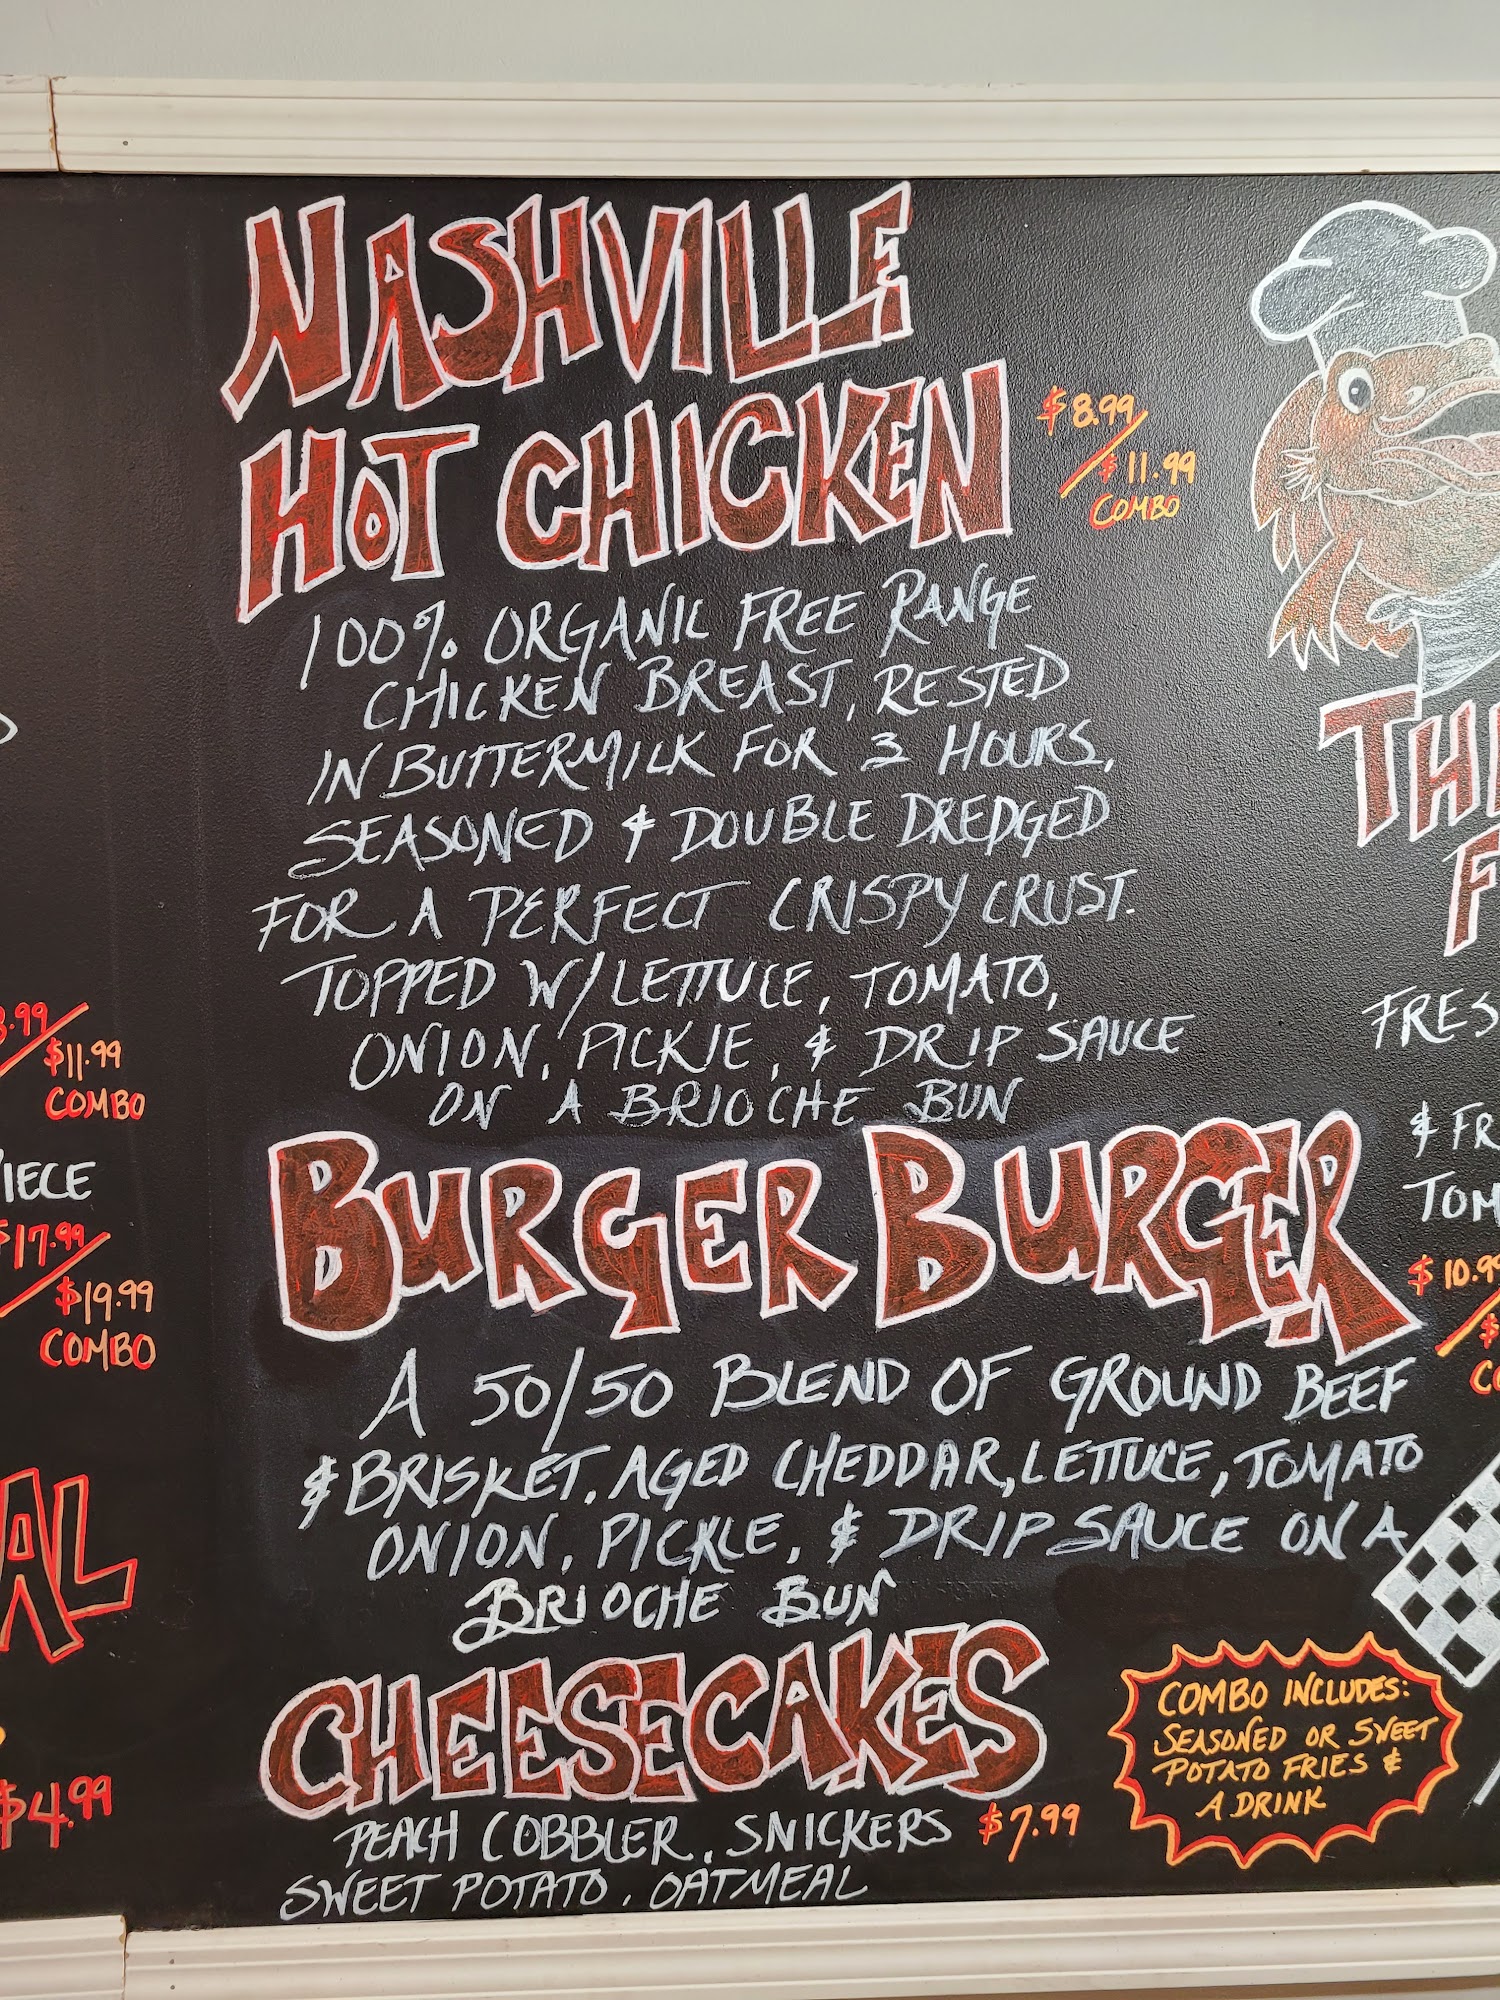 NASHVILLE
HOT CHICKEN
$8.99/
$11.99
COMBO
100% ORGANIC FREE RANGE
CHICKEN BREAST, RESTED
IN BUTTERMILK FOR 3 HOURS,
SEASONED & DOUBLE DREDGED
FOR A PERFECT CRISPY CRUST.
TOPPED W/ LETTUCE, TOMATO,
ONION, PICKLE, & DRIP SAUCE
ON A BRIOCHE BUN
BURGER BURGER
A 50/50 BLEND OF GROUND BEEF
& BRISKET, AGED CHEDDAR, LETTUCE, TOMATO
ONION, PICKLE, & DRIP SAUCE ON A
BRIOCHE BUN
CHEESECAKES
PEACH COBBLER, SNICKERS $7.99
SWEET POTATO, OATMEAL
COMBO INCLUDES:
SEASONED OR SWEET
POTATO FRIES &
A DRINK
.99/
$11.99
COMBO
IECE
$17.99/
$19.99
COMBO
AL
$4.99
TH
F
FRES
& FR
TOM
$10.99
$
CO